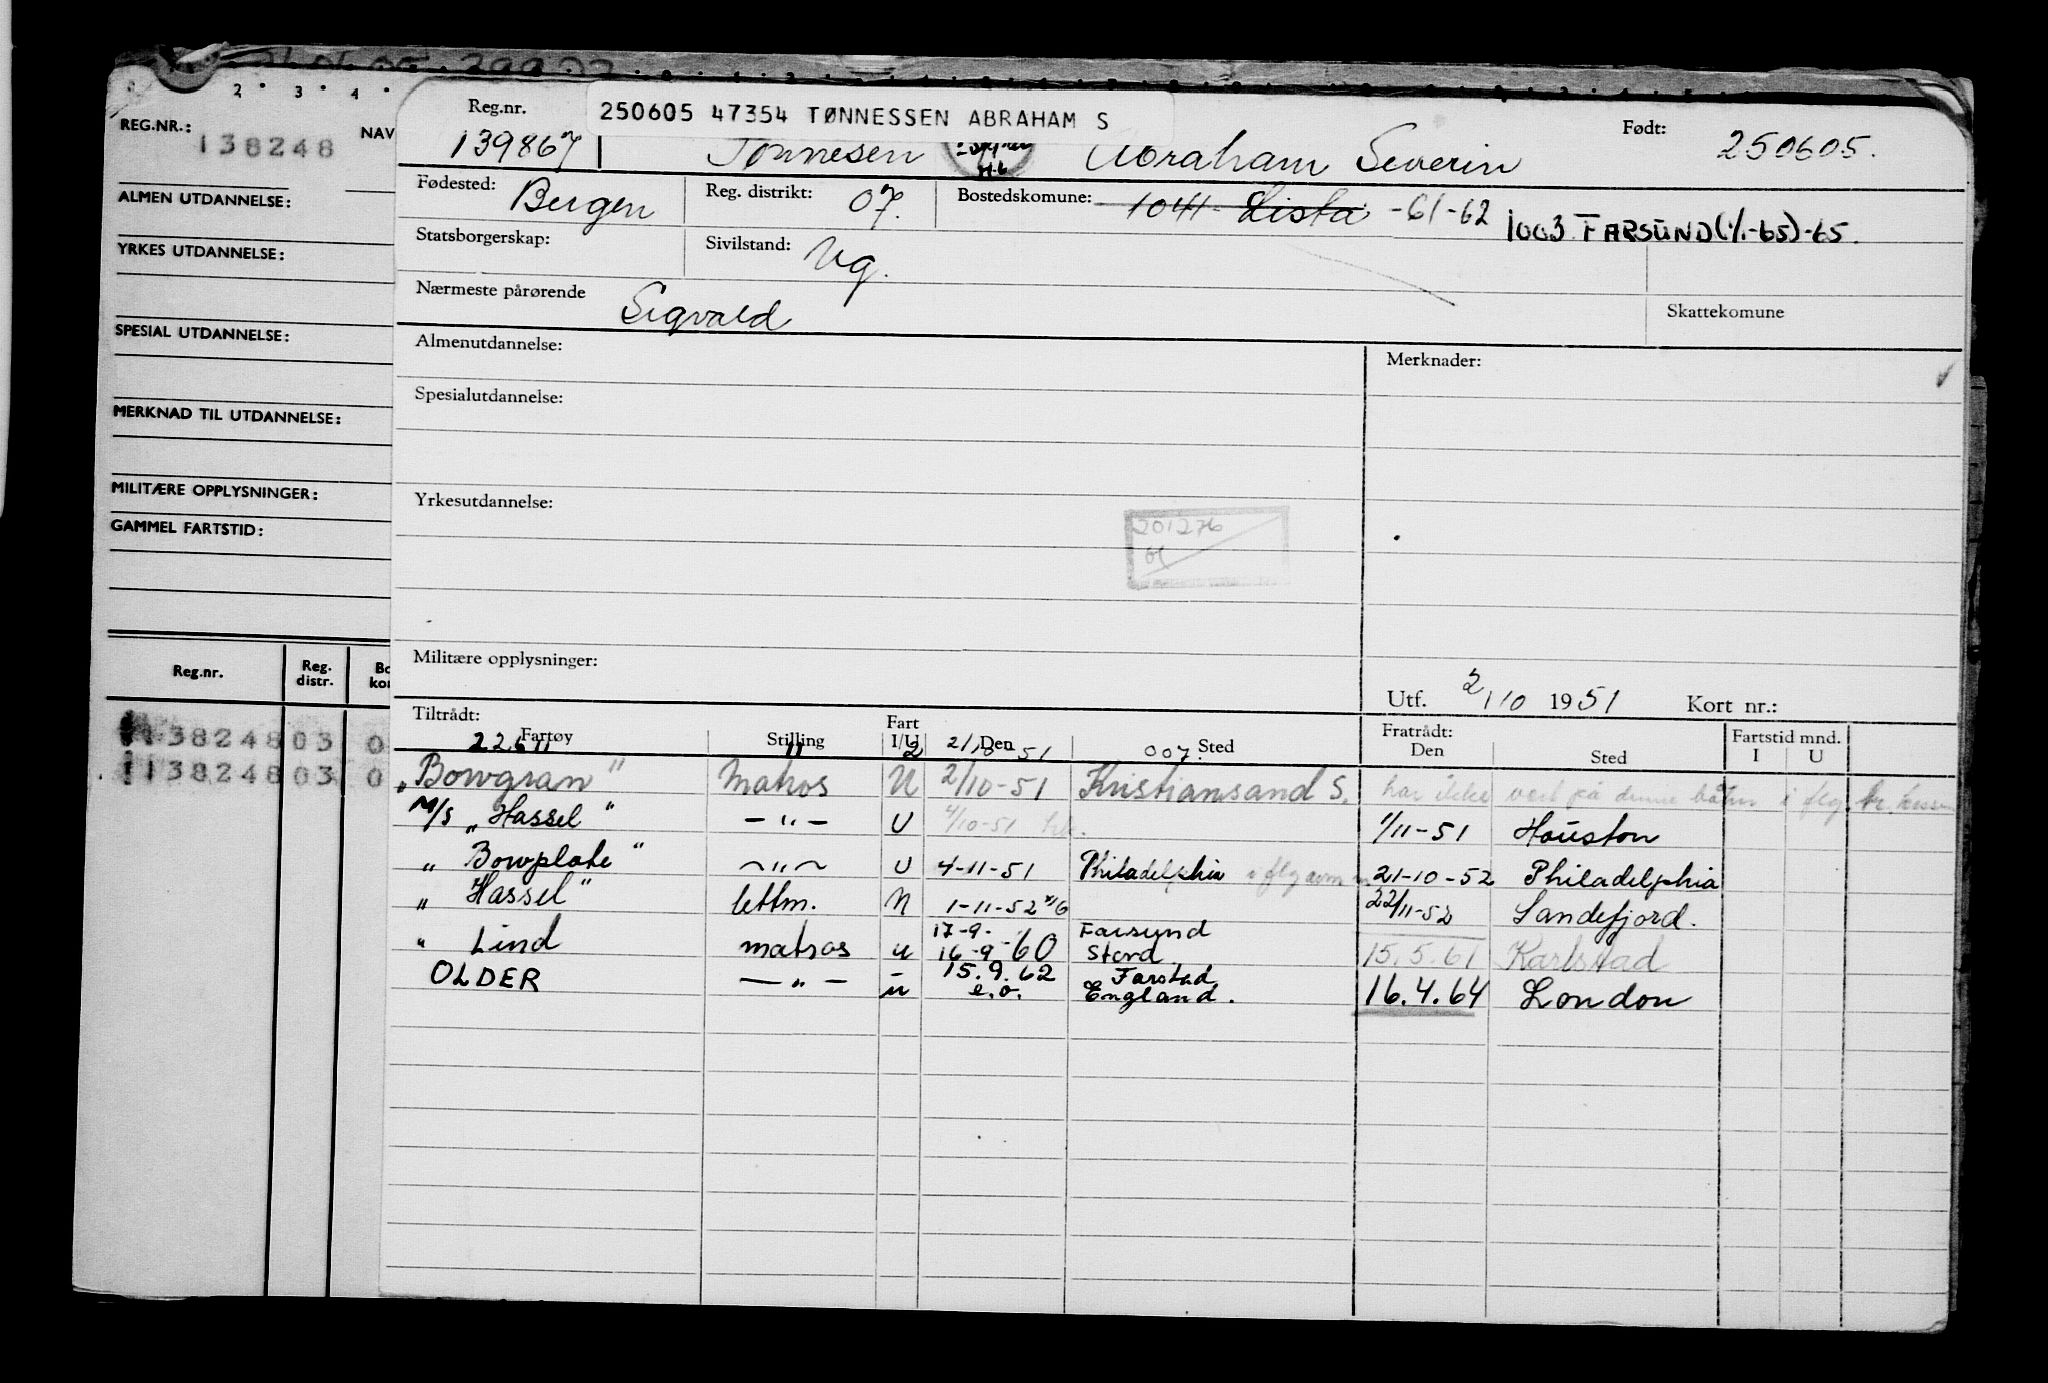 2 3 4
REG.NR.: NAV
138248
ALMEN UTDANNELSE:
YRKES UTDANNELSE:
SPESIAL UTDANNELSE:
MERKNAD TIL UTDANNELSE:
MILITÆRE OPPLYSNINGER:
GAMMEL FARTSTID:
Reg.nr. Reg. distr. Bo kor
138248 03 0
138248 03 0
Reg.nr. 250605 47354 TØNNESSEN ABRAHAM S Født:
139867 Tønnesen Abraham Severin 250605.
Fødested: Bergen Reg. distrikt: 07. Bostedskomune: 1041 Lista -61-62 1003 FARSUND(1/1-65)-65.
Statsborgerskap: Sivilstand: Ug.
Nærmeste pårørende Sigvald Skattekomune
Almenutdannelse: Merknader:
Spesialutdannelse:
Yrkesutdannelse:
201276
Militære opplysninger:
Utf. 2/10 1951 Kort nr.:
Tiltrådt: Fart Fratrådt: Fartstid mnd.
Fartøy Stilling I/U Den Sted Den Sted I U
11 2 2/10 51 007.
"Bowgran" Matros N 2/10-51 Kristiansand S. har ikke vært på denne båten i flg.
M/S "Hassel" — " — U 4/10-51 1/11-51 Houston
" Bowplate" — " — U 4-11-51 Philadelphia i flg 21-10-52 Philadelphia
" Hassel" lettm. N 1-11-52 22/11-52 Sandefjord.
17-9- Farsund
" Lind matros u 16-9-60 Stord. 15.5.61 Karlstad
OLDER — " — u 15.9.62 Farstad
e.o. England. 16.4.64 London